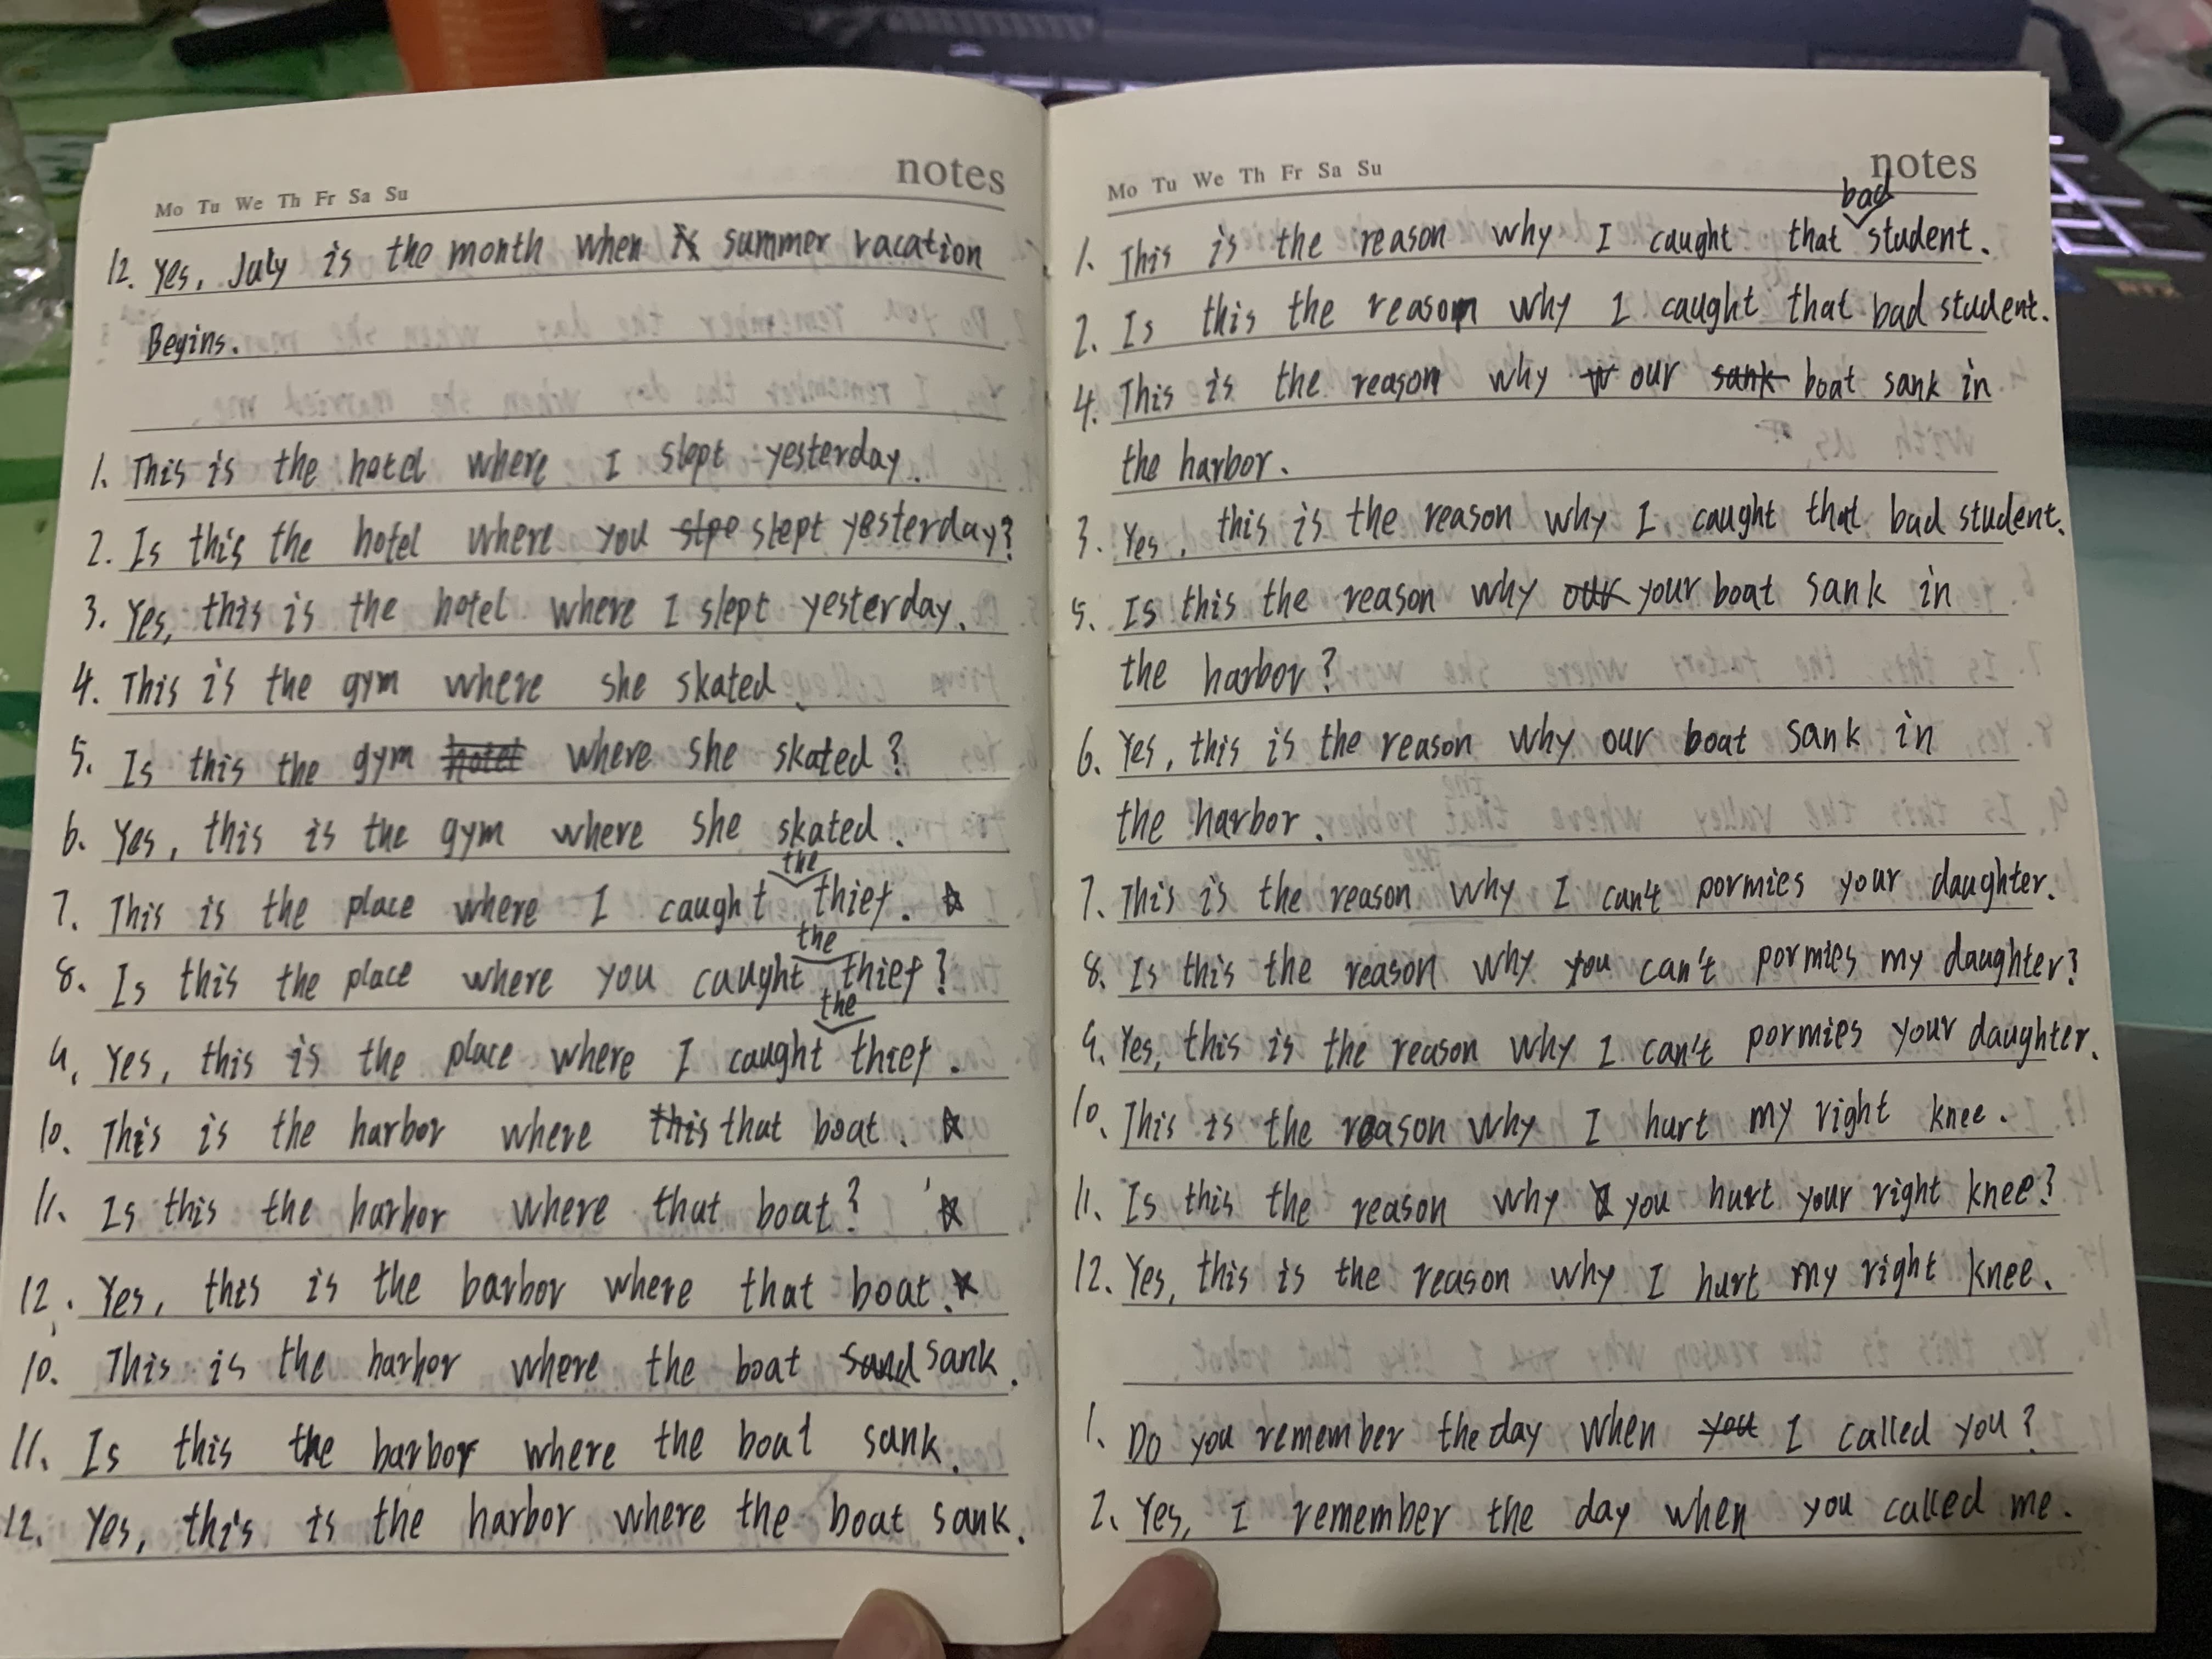 notes
Mo Tu We Th Fr Sa Su
12. Yes, July is the month when summer vacation
Begins.
1. This is the hotel where I slept yesterday.
2. Is this the hotel where you slept yesterday?
3. Yes, this is the hotel where I slept yesterday.
4. This is the gym where she skated.
5. Is this the gym where she skated?
6. Yes, this is the gym where she skated.
7. This is the place where I caught the thief. ☆
8. Is this the place where you caught the thief?
9. Yes, this is the place where I caught the thief.
10. This is the harbor where that boat. ☆
11. Is this the harbor where that boat? ☆
12. Yes, this is the barbor where that boat. ☆
10. This is the harbor where the boat sank.
11. Is this the barbor where the boat sank.
12. Yes, this is the harbor where the boat sank.
notes
Mo Tu We Th Fr Sa Su
1. This is the reason why I caught that bad student.
2. Is this the reason why I caught that bad student.
4. This is the reason why our boat sank in
the harbor.
3. Yes, this is the reason why I caught that bad student.
5. Is this the reason why your boat sank in
the harbor?
6. Yes, this is the reason why our boat sank in
the harbor.
7. This is the reason why I can't pormies your daughter.
8. Is this the reason why you can't pormies my daughter?
9. Yes, this is the reason why I can't pormies your daughter.
10. This is the reason why I hurt my right knee.
11. Is this the reason why you hurt your right knee?
12. Yes, this is the reason why I hurt my right knee.
1. Do you remember the day when I called you?
2. Yes, I remember the day when you called me.